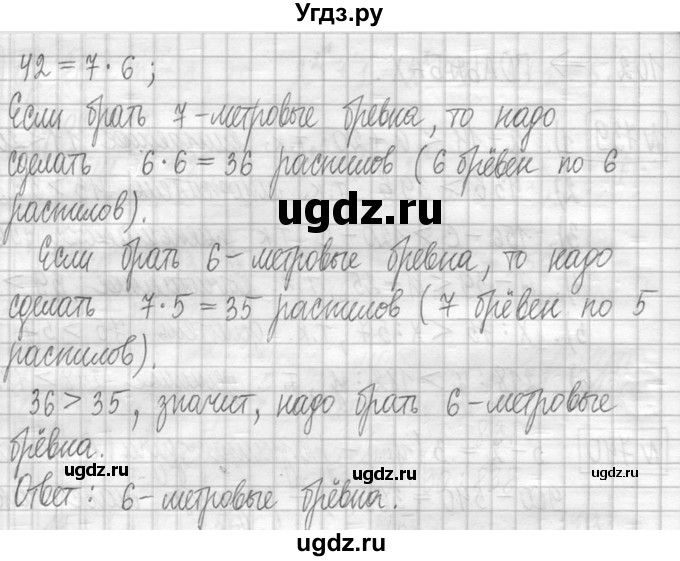 Угдз.ру
42 = 7 · 6 ;
Если брать 7-метровые бревна, то надо
сделать 6 · 6 = 36 распилов ( 6 брёвен по 6
распилов).
ugdz.ru
Если брать 6-метровые бревна, то надо
сделать 7 · 5 = 35 распилов ( 7 брёвен по 5
распилов).
36 > 35, значит, надо брать 6-метровые
брёвна.
ugdz.ru
ugdz.ru
Ответ : 6-метровые брёвна.
ugdz.ru